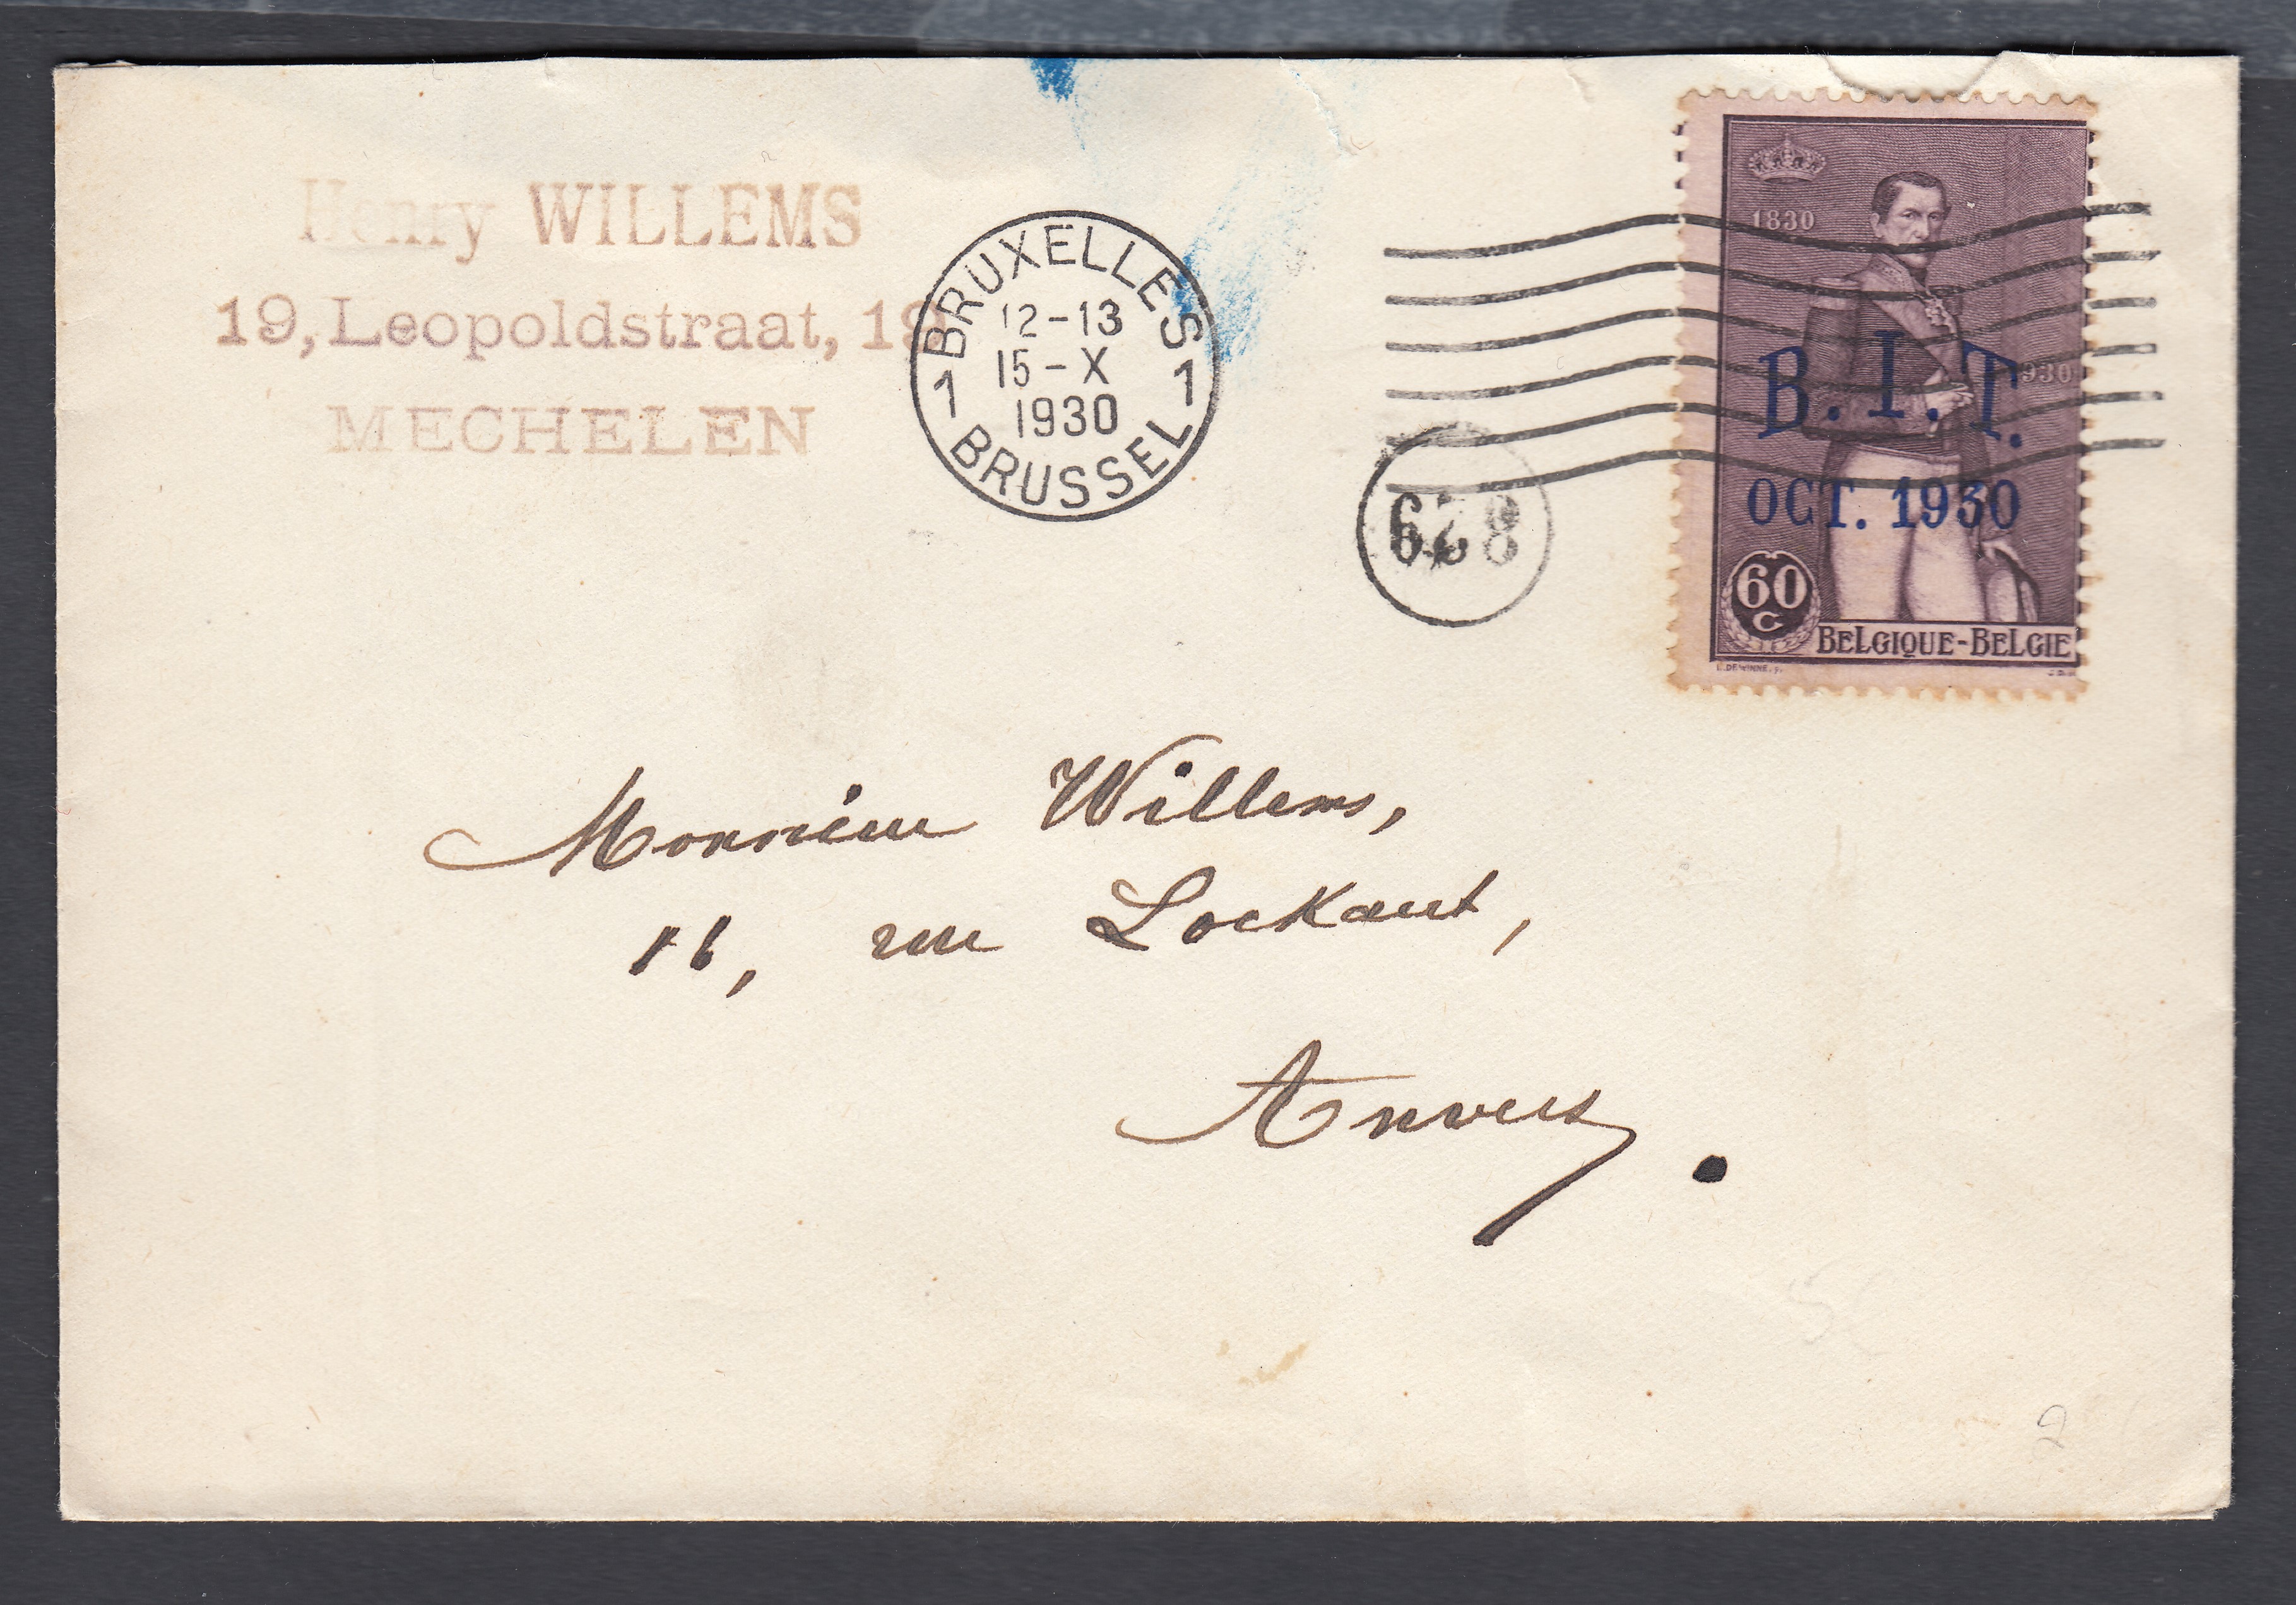 Henry WILLEMS
19, Leopoldstraat, 19
MECHELEN
BRUXELLES
12-13
15-X
1930
1 1
BRUSSEL
1830
1930
B.I.T.
OCT. 1930
60
C
BELGIQUE-BELGIE
Monsieur Willems,
16, rue Lockaert,
Anvers.
2